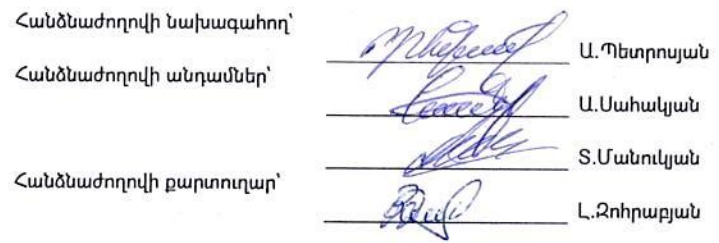 Հանձնաժողովի նախագահող՝
Ա.Պետրոսյան
Հանձնաժողովի անդամներ՝
Ա.Սահակյան
Տ.Մանուկյան
Հանձնաժողովի քարտուղար՝
Լ.Զոհրաբյան